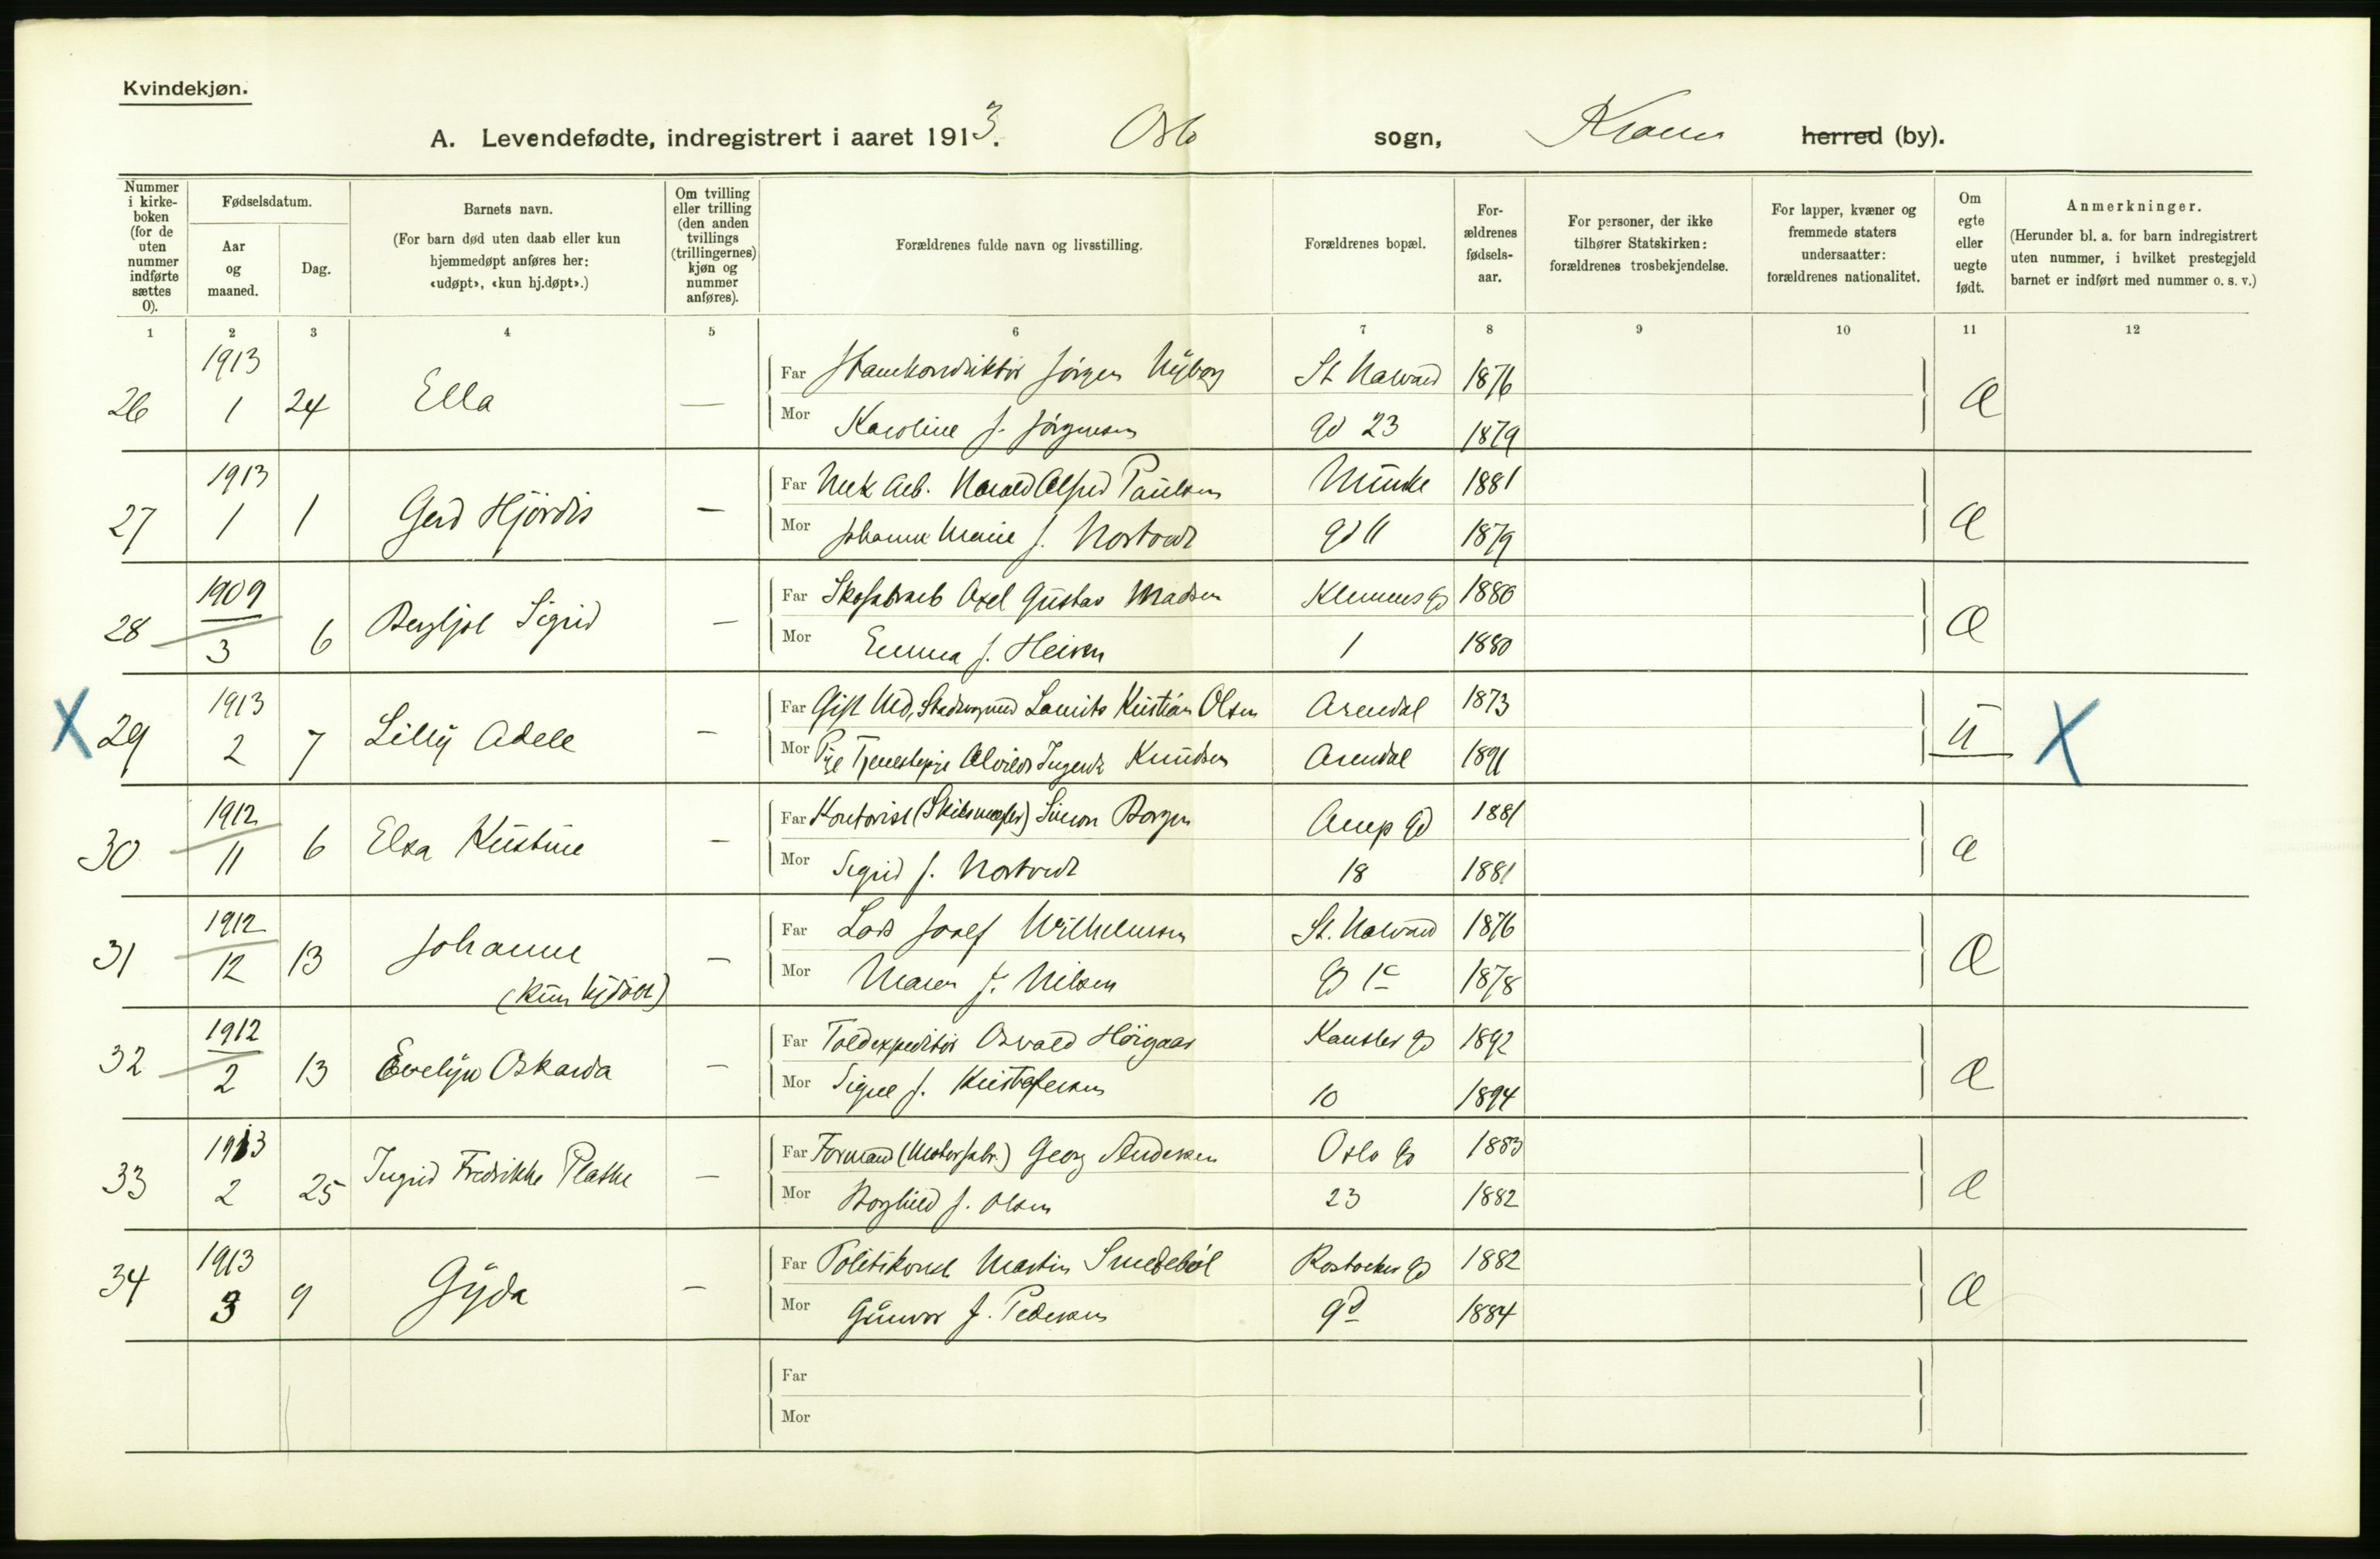 Kvindekjøn.
A. Levendefødte, indregistrert i aaret 1913. Oslo sogn, herred (by).
Nummer i kirke-boken (for de uten nummer indførte sættes 0).
Fødselsdatum.
Aar og maaned.
Dag.
Barnets navn.
(For barn død uten daab eller kun hjemmedøpt anføres her: «udøpt», «kun hj.døpt».)
Om tvilling eller trilling (den anden tvillings (trillingernes) kjøn og nummer anføres).
Forældrenes fulde navn og livsstilling.
Forældrenes bopæl.
For-ældrenes fødsels-aar.
For personer, der ikke tilhører Statskirken: forældrenes trosbekjendelse.
For lapper, kvæner og fremmede staters undersaatter: forældrenes nationalitet.
Om egte eller uegte født.
Anmerkninger.
(Herunder bl. a. for barn indregistrert uten nummer, i hvilket prestegjeld barnet er indført med nummer o. s. v.)
1 2 3 4 5 6 7 8 9 10 11 12
26 1913 1 24 Ella — Far Jørgen Nyborg St Halvard 1876 Æ
Mor Karoline f. Jørgensen gd 23 1879
27 1913 1 1 Gerd Hjördis — Far Mek Arb. Harald Alfred Paulsen Munke 1881 Æ
Mor Johanne Marie f. Nortvedt gd 11 1879
28 1909 3 6 Bergljot Sigrid — Far Skofabrarb Axel Gustav Madsen Klemens gd 1880 Æ
Mor Emma f. 1 1880
X 29 1913 2 7 Lilly Adele — Far Gift Lauritz Kristian Olsen Arendal 1873 U X
Mor Pige Knudsen Arendal 1891
30 1912 11 6 Elsa Kristine — Far Kontorist Simon Borgen Arup gd 1881 Æ
Mor Sigrid f. Nortvedt 18 1881
31 1912 12 13 Johanne — Far Lods Josef Wilhelmsen St. Halvard 1876 Æ
(kun hjdöbt) Mor Maren f. Nilsen gd 1c 1878
32 1912 2 13 Evelyn Oskarda — Far Toldexpeditör Osvald Höigaar Kansler gd 1892 Æ
Mor Signe f. Kristofersen 10 1894
33 1913 2 25 Ingrid Fredrikke — Far Formand (Motorfabr.) Georg Andersen Oslo gd 1883 Æ
Mor Borghild f. Olsen 23 1882
34 1913 3 9 Gyda — Far Politikonst Martin Smedeböl Rostocker gd 1882 Æ
Mor Gunvor f. Pedersen 9d 1884
Far
Mor